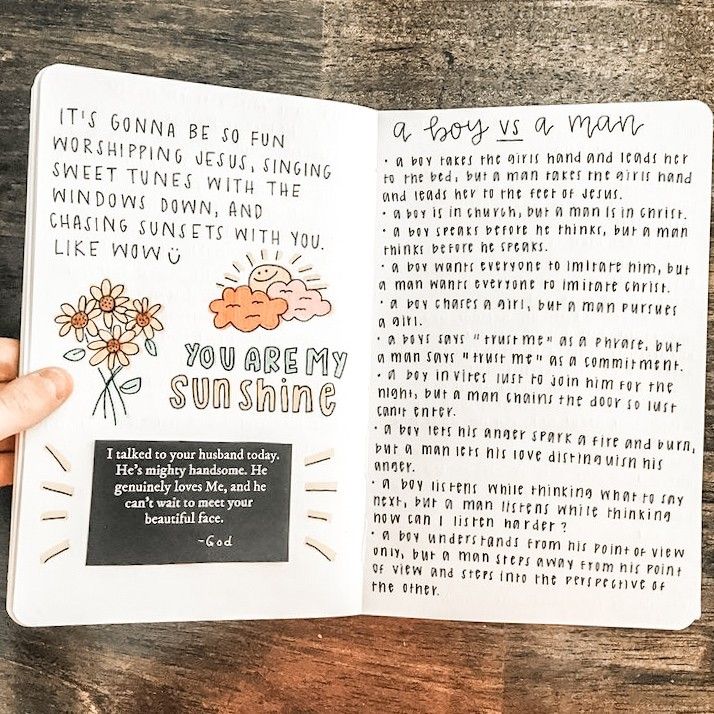 IT'S GONNA BE SO FUN
WORSHIPPING JESUS, SINGING
SWEET TUNES WITH THE
WINDOWS DOWN, AND
CHASING SUNSETS WITH YOU.
LIKE WOW
YOU ARE MY
SUNShine
I talked to your husband today.
He's mighty handsome. He
genuinely loves Me, and he
can't wait to meet your
beautiful face.
-God
a boy vs a man
• a boy takes the girls hand and leads her
to the bed, but a man takes the girls hand
and leads her to the feet of Jesus.
• a boy is in church, but a man is in Christ.
• a boy speaks before he thinks, but a man
thinks before he speaks.
• a boy wants everyone to imitate him, but
a man wants everyone to imitate Christ.
• a boy chases a girl, but a man pursues
a girl.
• a boys says "trust me" as a phrase, but
a man says "trust me" as a commitment.
• a boy invites lust to join him for the
night, but a man chains the door so lust
can't enter.
• a boy lets his anger spark a fire and burn,
but a man lets his love distinguish his
anger.
• a boy listens while thinking what to say
next, but a man listens while thinking
how can I listen harder?
• a boy understands from his point of view
only, but a man steps away from his point
of view and steps into the perspective of
the other.